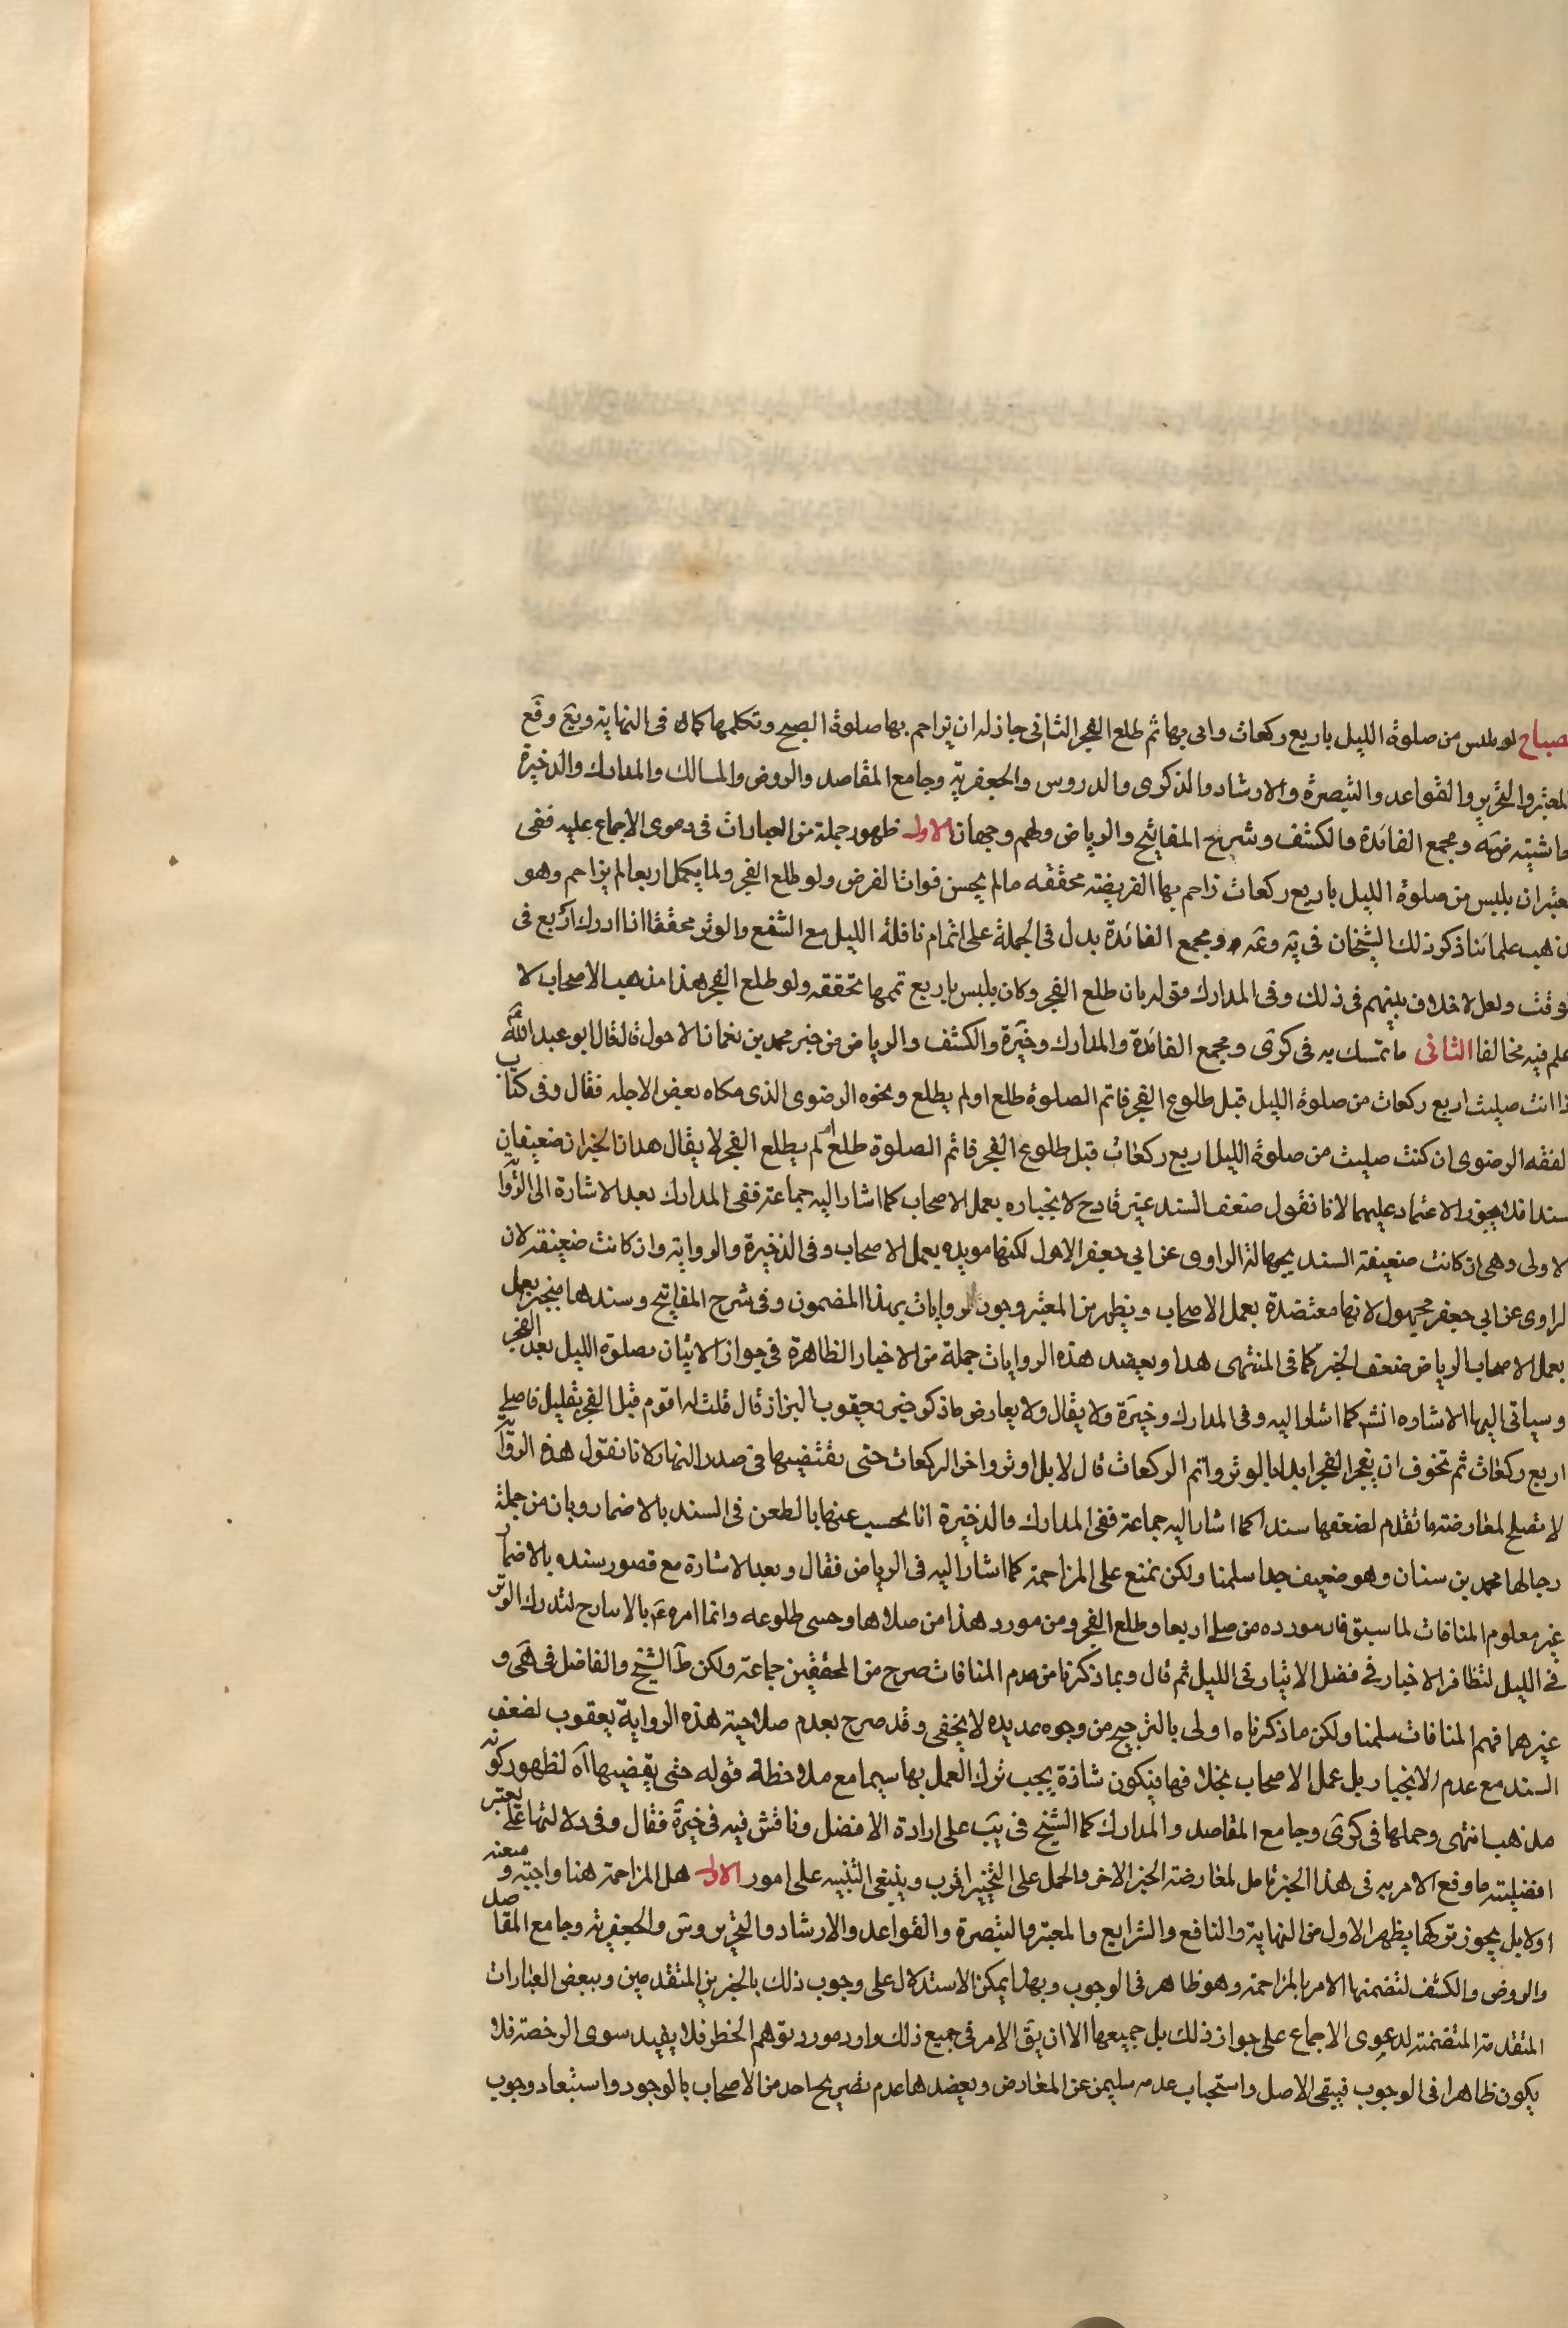 صباح لو تلبس من صلوة الليل باربع ركعات واتى بها ثم طلع الفجر الثانى جاز له ان يزاحم بها صلوة الصبح وتكلمها كما فى النهاية ويع وقع
المعتبر والتحرير والقواعد والتبصرة والارشاد والذكرى والدروس والجعفرية وجامع المقاصد والروض والمسالك والمدارك والذخيرة
حاشيته ومجمع الفائدة والكشف وشرح المفاتيح والرياض ولهم وجهان الاول ظهور جملة من العبارات فى دعوى الاجماع عليه ففى
المعتبر ان تلبس من صلوة الليل باربع ركعات زاحم بها الفريضة مخففة ما لم يخش فوات الفرض ولو طلع الفجر ولما يكمل اربعا لم يزاحم وهو
مذهب علمائنا ذكر ذلك الشيخان فى ية وعة ومجمع الفائدة يدل فى الجملة على اتمام نافلة الليل مع الشفع والوتر مخففا اذا ادرك اربع فى
الوقت ولعل لا خلاف بينهم فى ذلك وفى المدارك قوله بان طلع الفجر وكان تلبس باربع تممها مخففة ولو طلع الفجر هذا مذهب الاصحاب لا
اعلم فيه مخالفا الثانى ما تمسك به فى كرى ومجمع الفائدة والمدارك وخيرة والكشف والرياض من خبر محمد بن نعمان الاحول قال قال ابو عبد الله
اذا انت صليت اربع ركعات من صلوة الليل قبل طلوع الفجر فاتم الصلوة طلع او لم يطلع ونحوه الرضوى الذى حكاه بعض الاجلة فقال وفى كتاب
الفقه الرضوى ان كنت صليت من صلوة الليل اربع ركعات قبل طلوع الفجر فاتم الصلوة طلع ام لم يطلع الفجر لا يقال هذان الخبران ضعيفان
سندا فلا يجوز الاعتماد عليهما لانا نقول ضعف السند غير قادح لانجباره بعمل الاصحاب كما اشار اليه جماعة ففى المدارك بعد الاشارة الى الرواية
الاولى وهى ان كانت ضعيفة السند بجهالة الراوى عن ابى جعفر الاحول لكنها مؤيده بعمل الاصحاب وفى الذخيرة والرواية وان كانت ضعيفة لان
الراوى عن ابى جعفر مجهول لانها معتضدة بعمل الاصحاب ويظهر من المعتبر وجود الروايات بهذا المضمون وفى شرح المفاتيح وسندها منجبر بعمل
بعمل الاصحاب الرياض ضعف الخبر كما فى المنتهى هذا ويعضد هذه الروايات جملة من الاخبار الظاهرة فى جواز الاتيان بصلوة الليل بعد الفجر
وسياتى اليها الاشاره انش كما اشار اليه وفى المدارك وخيرة ولا يقال ولا يعارض ما ذكر خبر يعقوب البزاز قال قلت له اقوم قبل الفجر بقليل فاصلى
اربع ركعات ثم تخوف ان يفجر الفجر ابدا بالوتر واتم الركعات قال لا بل اوتر واخر الركعات حتى تقضيها فى صدر النهار لانا نقول هذه الرواية
لا تصلح لمعارضة ما تقدم لضعفها سندا كما اشار اليه جماعة ففى المدارك والذخيرة انا نجيب عنها بالطعن فى السند بالاضمار وبان من جملة
رجالها محمد بن سنان وهو ضعيف جدا سلمنا ولكن نمنع على المزاحمة كما اشار اليه فى الرياض فقال وبعد الاشارة مع قصور سنده بالاضمار
غير معلوم المنافات لما سبق فان مورده من صلى اربعا وطلع الفجر ومن مورد هذا من صلاها وخشى طلوعه وانما امره ع بالايتار ح لتدرك الوتر
فى الليل لتظافر الاخبار فى فضل الايتار فى الليل ثم قال وبما ذكرنا من عدم المنافات صرح من المحققين جماعة ولكن ظ الشيخ والفاضل فى هى و
غيرهما فهم المنافات سلمنا ولكن ما ذكرناه اولى بالترجيح من وجوه عديده لا يخفى وقد صرح بعدم صلاحية هذه الرواية يعقوب لضعف
السند مع عدم الانجبار بل عمل الاصحاب بخلافها فيكون شاذة يجب ترك العمل بها سيما مع ملاحظة قوله حتى يقضيها آه لظهور كونه
مذهب انتهى وحملها فى كرى وجامع المقاصد والمدارك كما الشيخ فى يب على ارادة الافضل وناقش فيه فى خيرة فقال وفى دلالتها على تعتبر
افضلية ما وقع الامر به فى هذا الخبر تامل لمعارضة الخبر الاخر والحمل على التخيير اقرب وينبغى التنبيه على امور الاول هل المزاحمة هنا واجبة و متعينه
او لا بل يجوز تركها يظهر الاول من النهاية والنافع والشرايع والمعتبر والتبصرة والقواعد والارشاد والتحرير وس والجعفرية وجامع المقاصد
والروض والكشف لتضمنها الامر بالمزاحمة وهو ظاهر فى الوجوب وبهذا يمكن الاستدلال على وجوب ذلك بالخبرين المتقدمين وببعض العبارات
المتقدمة المتضمنة لدعوى الاجماع على جواز ذلك بل جميعها الا ان يق الامر فى جميع ذلك وارد مورد توهم الحظر فلا يفيد سوى الرخصة فلا
يكون ظاهرا فى الوجوب فيبقى الاصل واستحباب عدمه سليمين عن المعارض ويعضدها عدم تصريح احد من الاصحاب بالوجود واستبعاد وجوب